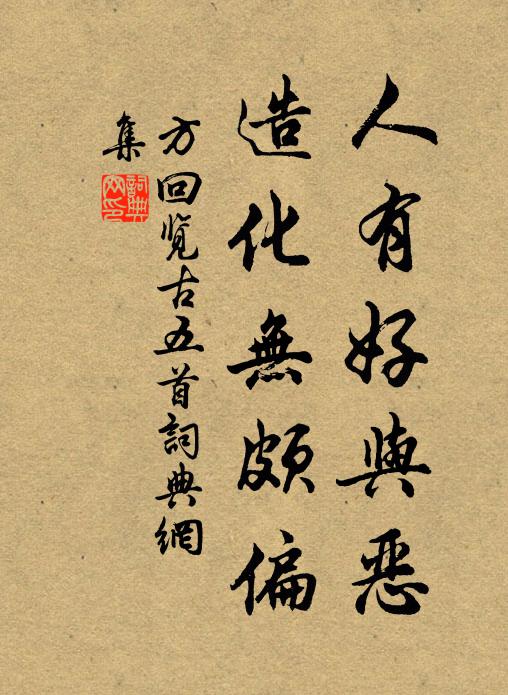 人有好與惡
造化無頗偏
方回览古五首詞典網
集
詞典網印